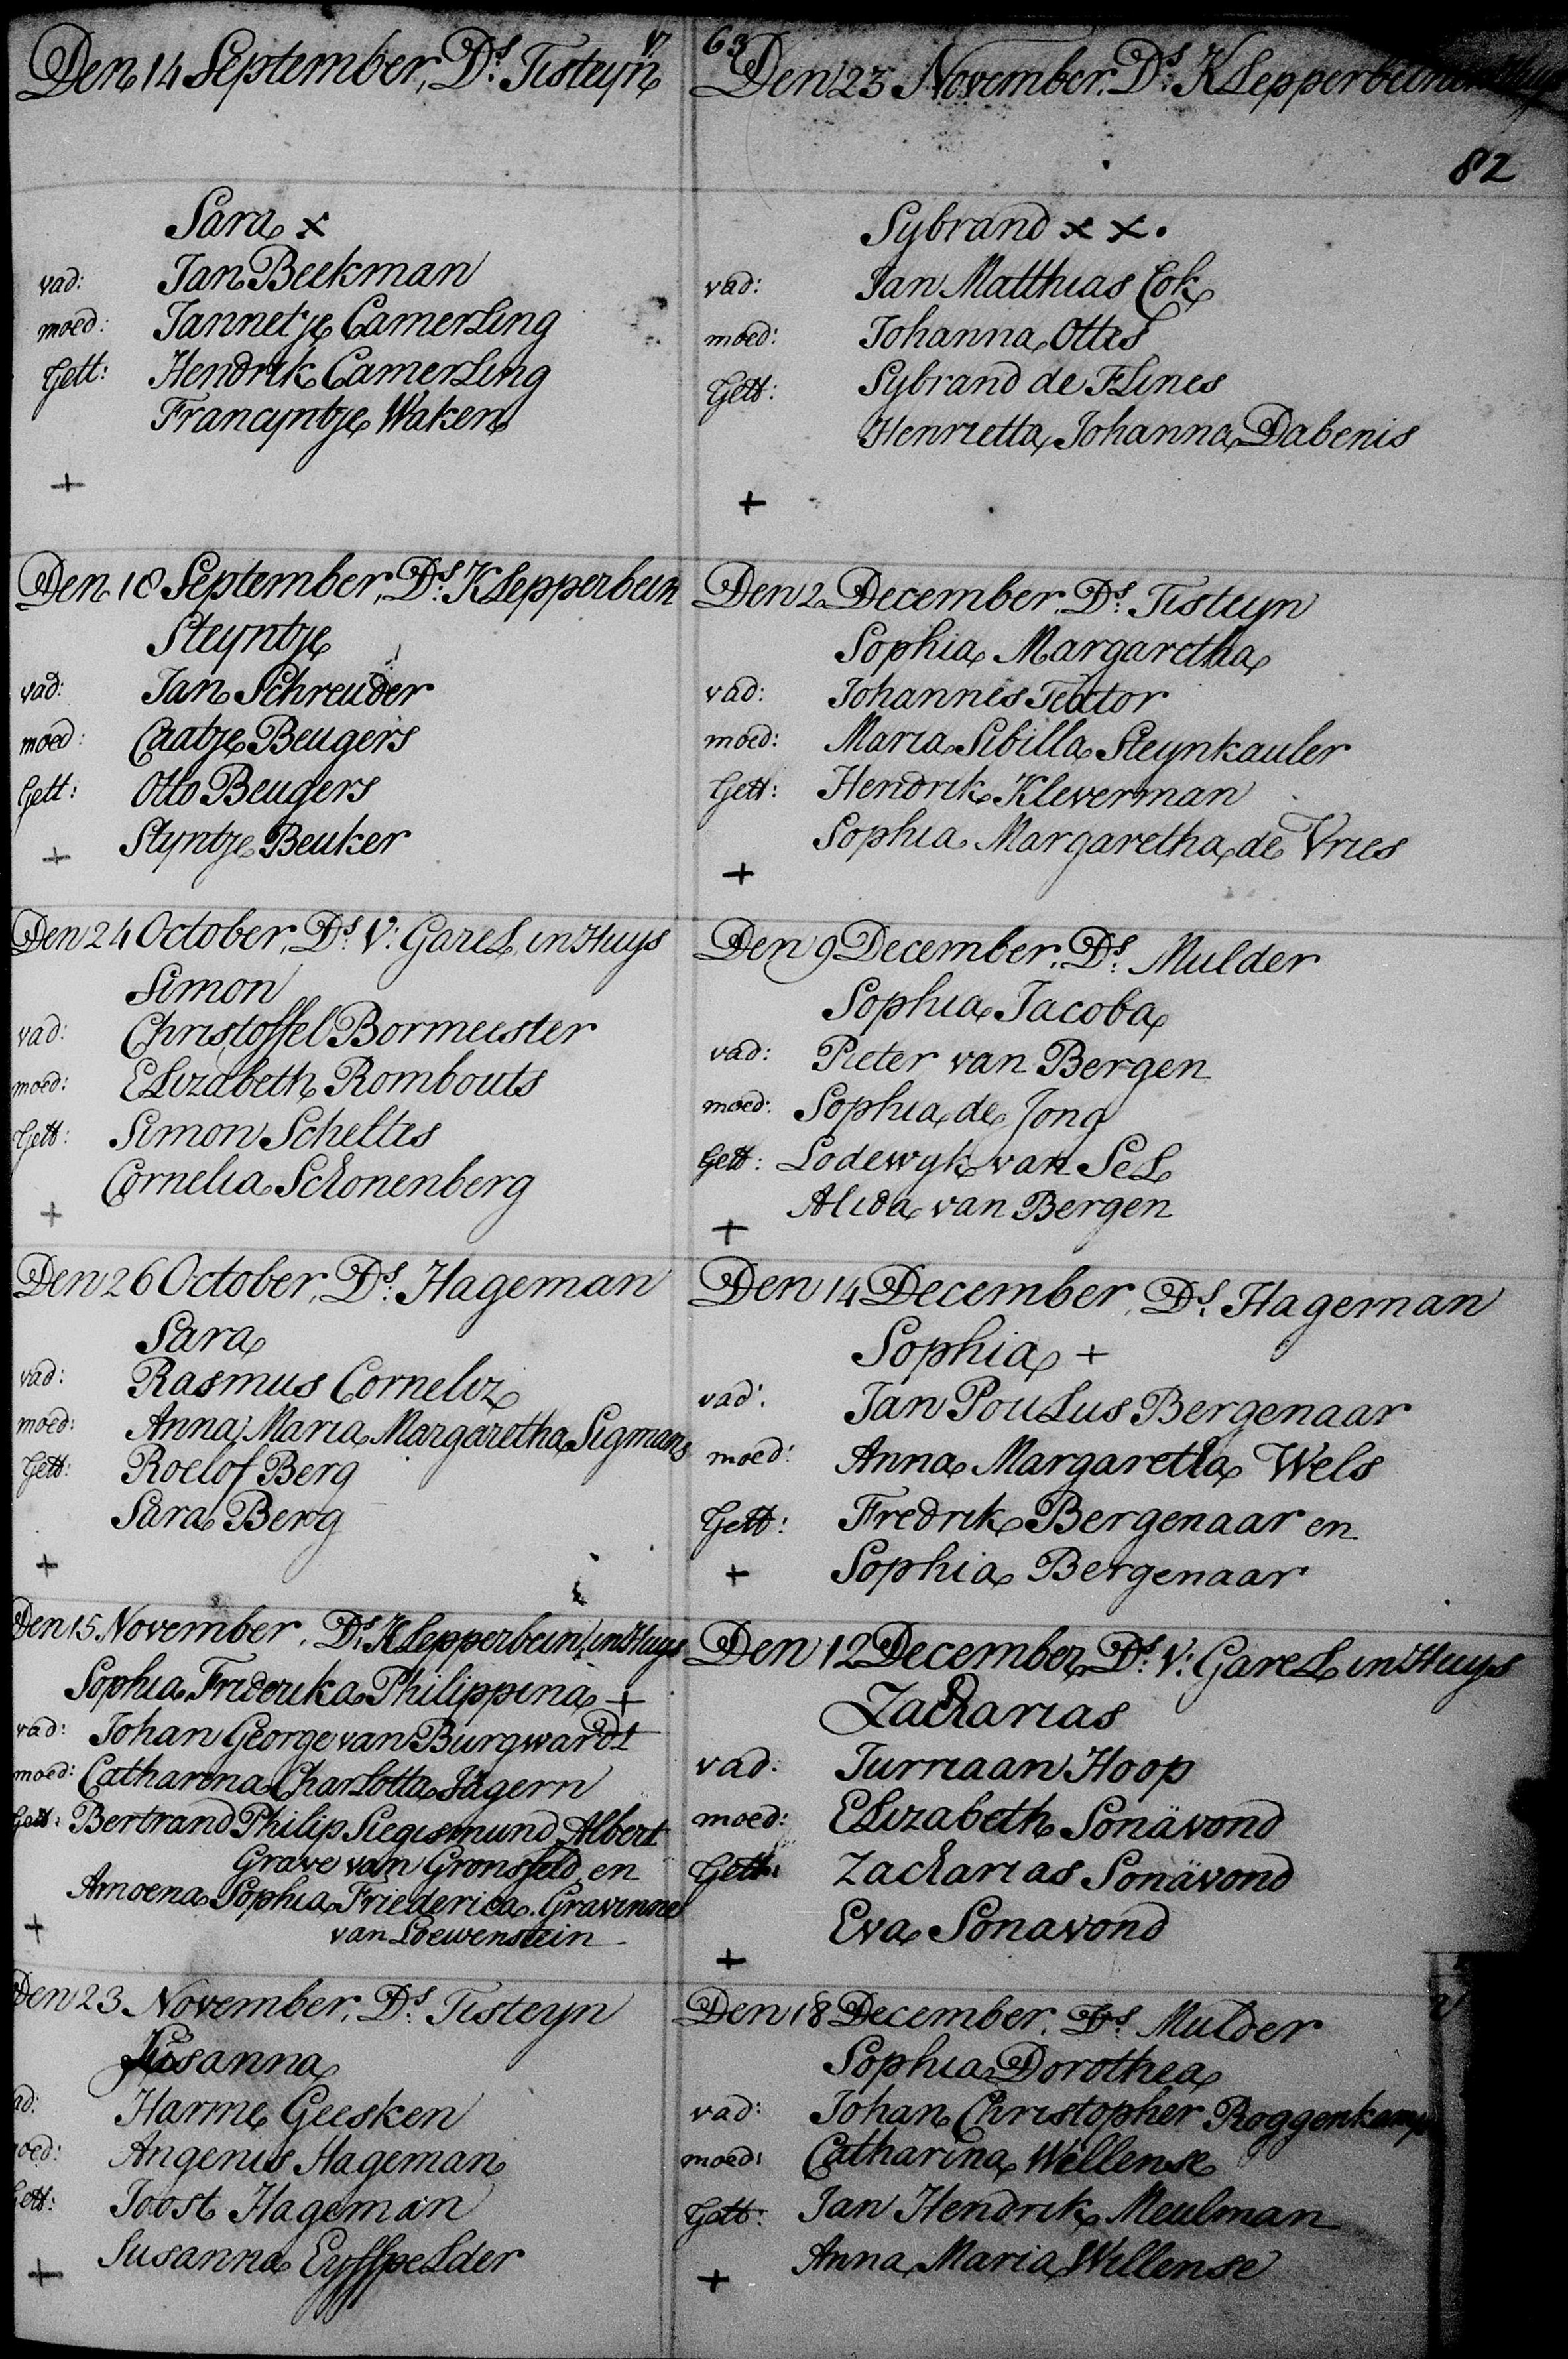 Den 14 September, Ds. Tisteyn
Sara x
vad: Jan Beekman
moed: Jannetje Camerling
Gett: Hendrik Camerling
Francyntje Waken
+
Den 18 September, Ds. Klepperbein
Steyntje
vad: Jan Schreuder
moed: Caatje Beugers
Gett: Otto Beugers
Styntje Beuker
+
Den 24 October, Ds. V: Garel, in Huys
Simon
vad: Christoffel Bormeister
moed: Elizabeth Rombouts
Gett: Simon Scheltes
Cornelia Schonenberg
+
Den 26 October, Ds. Hageman
Sara
vad: Rasmus Corneliz
moed: Anna Maria Margaretha Sigmans
Gett: Roelof Berg
Sara Berg
+
Den 15 November, Ds. Klepperbein, in Huys
Sophia Friderika Philippina +
vad: Johan George van Burgwardt
moed: Catharina Charlotta Jägern
Gett: Bertrand Philip Siegismund Albert
Grave van Gronsfeld en
Amoena Sophia Friederica Gravinne
van Loewenstein
+
Den 23 November, Ds. Tisteyn
Susanna
vad: Harme Geesken
moed: Angenis Hageman
Gett: Joost Hageman
Susanna Eyffpelder
+
63
Den 23 November, Ds. Klepperbein in Huys
82
Sybrand x x.
vad: Jan Matthias Cok
moed: Johanna Ottes
Gett: Sybrand de Flines
Henrietta Johanna Dabenis
+
Den 2 December, Ds. Tisteyn
Sophia Margaretha
vad: Johannes Textor
moed: Maria Sibilla Steynkauler
Gett: Hendrik Kleverman
Sophia Margaretha de Vries
+
Den 9 December, Ds. Mulder
Sophia Jacoba
vad: Pieter van Bergen
moed: Sophia de Jong
Gett: Lodewyk van Sel
Alida van Bergen
+
Den 14 December, Ds. Hageman
Sophia +
vad: Jan Poulus Bergenaar
moed: Anna Margaretha Wels
Gett: Fredrik Bergenaar en
+ Sophia Bergenaar
Den 12 December, Ds. V: Garel in Huys
Zacharias
vad: Jurriaan Hoop
moed: Elizabeth Sonävond
Gett: Zacharias Sonävond
Eva Sonavond
+
Den 18 December, Ds. Mulder
Sophia Dorothea
vad: Johan Christopher Roggenkamp
moed: Catharina Willense
Gett: Jan Hendrik Meulman
Anna Maria Willense
+